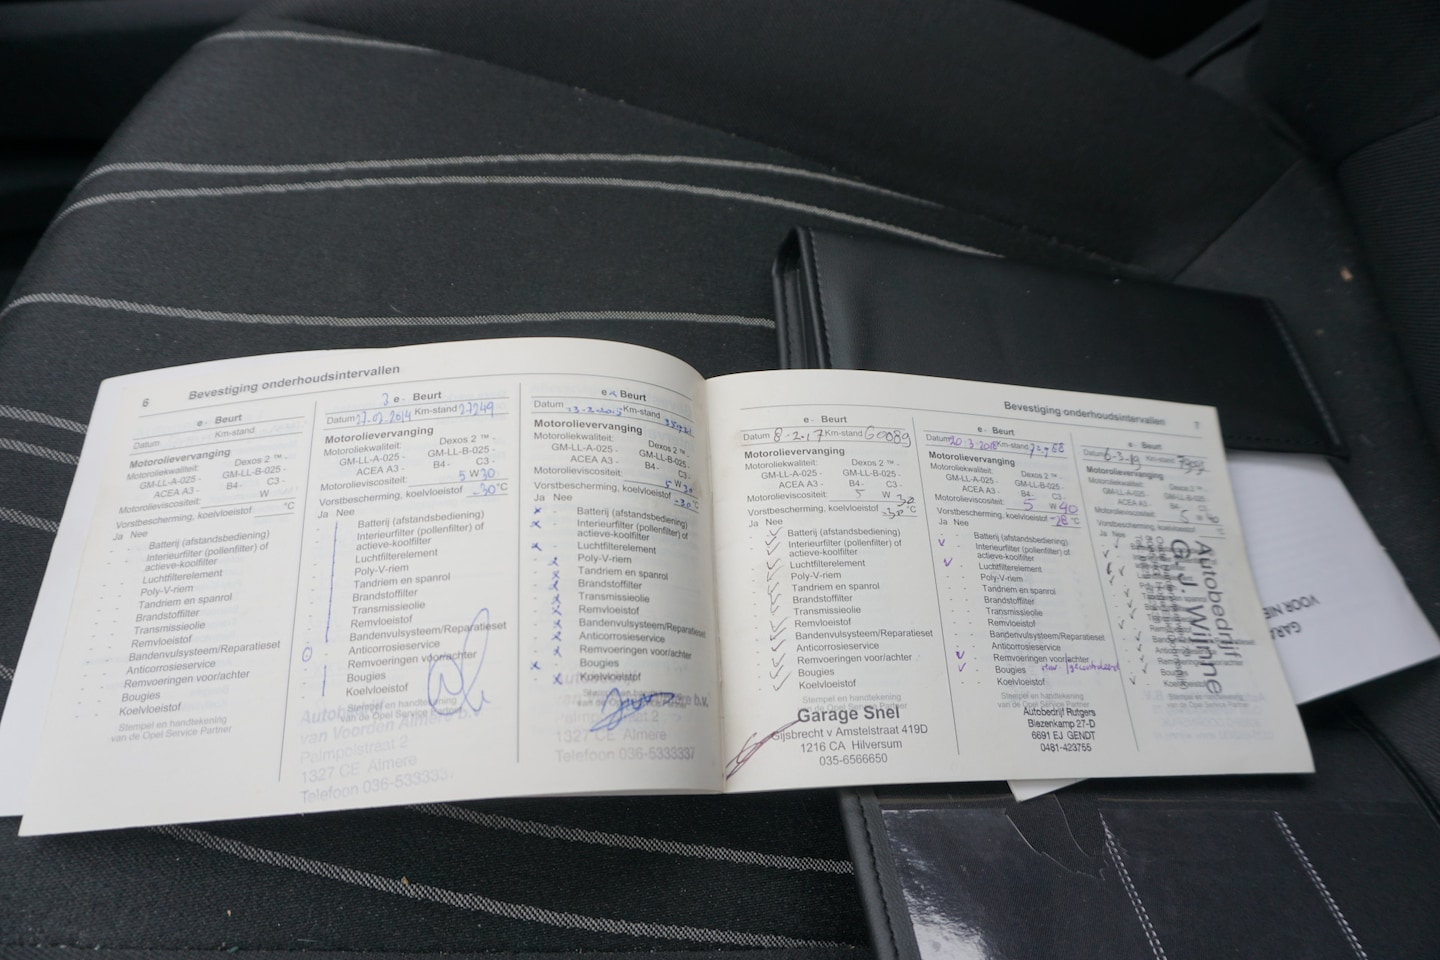 6
Bevestiging onderhoudsintervallen
e- Beurt
Datum Km-stand
Motorolievervanging
Motoroliekwaliteit: Dexos 2 ™ -
GM-LL-A-025 - GM-LL-B-025 -
ACEA A3 - B4- C3 -
Motorolieviscositeit: W
Vorstbescherming, koelvloeistof °C
Ja Nee
Batterij (afstandsbediening)
Interieurfilter (pollenfilter) of
actieve-koolfilter
Luchtfilterelement
Poly-V-riem
Tandriem en spanrol
Brandstoffilter
Transmissieolie
Remvloeistof
Bandenvulsysteem/Reparatieset
Anticorrosieservice
Remvoeringen voor/achter
Bougies
Koelvloeistof
Stempel en handtekening
van de Opel Service Partner
3 e- Beurt
Datum 27.03.2014 Km-stand 27249
Motorolievervanging
Motoroliekwaliteit: Dexos 2 ™ -
GM-LL-A-025 - GM-LL-B-025 -
ACEA A3 - B4- C3 -
Motorolieviscositeit: 5 W 30
Vorstbescherming, koelvloeistof -30 °C
Ja Nee
Batterij (afstandsbediening)
Interieurfilter (pollenfilter) of
actieve-koolfilter
Luchtfilterelement
Poly-V-riem
Tandriem en spanrol
Brandstoffilter
Transmissieolie
Remvloeistof
Bandenvulsysteem/Reparatieset
Anticorrosieservice
Remvoeringen voor/achter
Bougies
Koelvloeistof
Stempel en handtekening
van de Opel Service Partner
Autobedrijf
van Voorden Almere b.v.
Palmpolstraat 2
1327 CE Almere
Telefoon 036-5333337
e- Beurt
Datum Km-stand
Motorolievervanging
Motoroliekwaliteit: Dexos 2 ™ -
GM-LL-A-025 - GM-LL-B-025 -
ACEA A3 - B4- C3 -
Motorolieviscositeit: 5 W 30
Vorstbescherming, koelvloeistof -30 °C
Ja Nee
Batterij (afstandsbediening)
Interieurfilter (pollenfilter) of
actieve-koolfilter
Luchtfilterelement
Poly-V-riem
Tandriem en spanrol
Brandstoffilter
Transmissieolie
Remvloeistof
Bandenvulsysteem/Reparatieset
Anticorrosieservice
Remvoeringen voor/achter
Bougies
Koelvloeistof
1327 CE Almere
Telefoon 036-5333337
Bevestiging onderhoudsintervallen
7
e- Beurt
Datum 8-2-17 Km-stand 60089
Motorolievervanging
Motoroliekwaliteit: Dexos 2 ™ -
GM-LL-A-025 - GM-LL-B-025 -
ACEA A3 - B4- C3 -
Motorolieviscositeit: 5 W 30
Vorstbescherming, koelvloeistof -38 °C
Ja Nee
Batterij (afstandsbediening)
Interieurfilter (pollenfilter) of
actieve-koolfilter
Luchtfilterelement
Poly-V-riem
Tandriem en spanrol
Brandstoffilter
Transmissieolie
Remvloeistof
Bandenvulsysteem/Reparatieset
Anticorrosieservice
Remvoeringen voor/achter
Bougies
Koelvloeistof
Stempel en handtekening
van de Opel Service Partner
Garage Snel
Gijsbrecht v Amstelstraat 419D
1216 CA Hilversum
035-6566650
e- Beurt
Datum 20-3-2018 Km-stand
Motorolievervanging
Motoroliekwaliteit: Dexos 2 ™ -
GM-LL-A-025 - GM-LL-B-025 -
ACEA A3 - B4- C3 -
Motorolieviscositeit: 5 W 40
Vorstbescherming, koelvloeistof -28 °C
Ja Nee
Batterij (afstandsbediening)
Interieurfilter (pollenfilter) of
actieve-koolfilter
Luchtfilterelement
Poly-V-riem
Tandriem en spanrol
Brandstoffilter
Transmissieolie
Remvloeistof
Bandenvulsysteem/Reparatieset
Anticorrosieservice
Remvoeringen voor/achter
Bougies
Koelvloeistof
Stempel en handtekening
van de Opel Service Partner
Autobedrijf Rutgers
Biezenkamp 27-D
6691 EJ GENDT
0481-423755
e- Beurt
Datum 6-3-19 Km-stand
Motorolievervanging
Motoroliekwaliteit:
Ja Nee
Autobedrijf
G.J. Wijnne